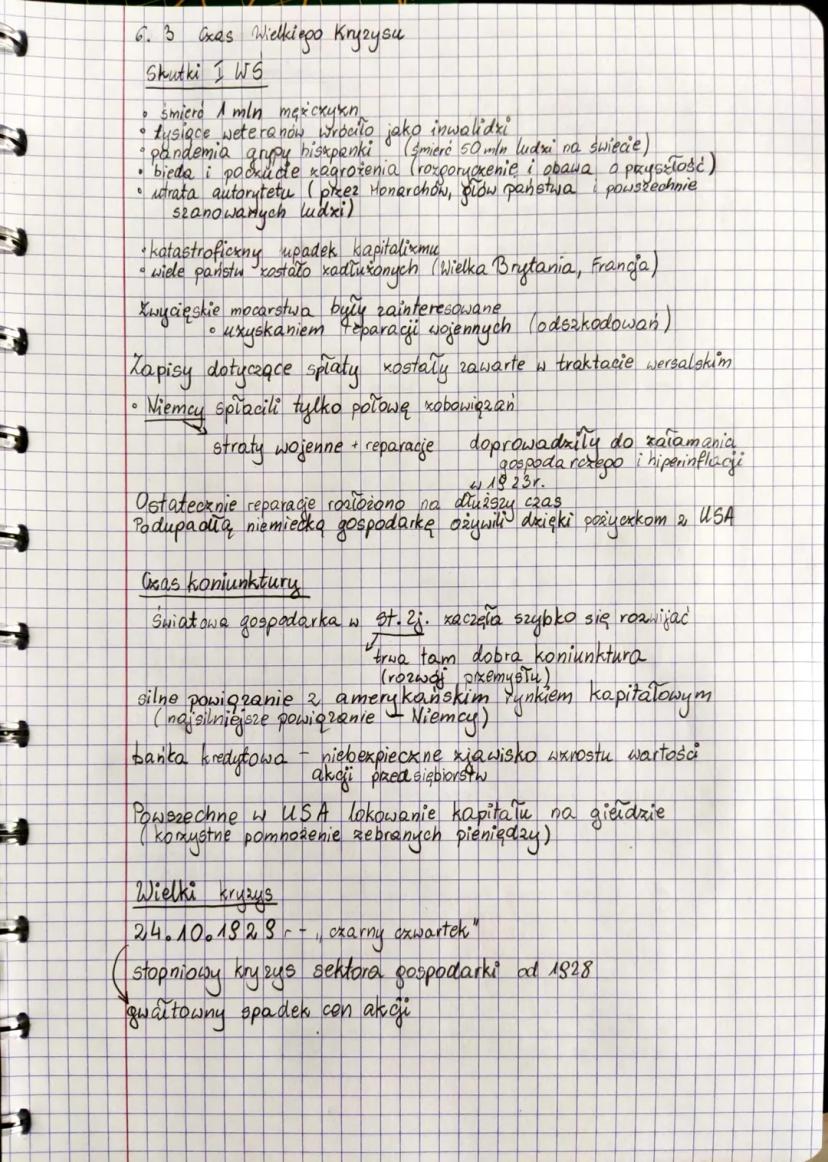 6.3 Czas Wielkiego Kryzysu
Skutki I WŚ
• śmierć 1 mln mężczyzn
• tysiące weteranów wróciło jako inwalidzi
• pandemia grypy hiszpanki (śmierć 50 mln ludzi na świecie)
• bieda i poczucie zagrożenia (rozgoryczenie i obawa o przyszłość)
• utrata autorytetu (przez Monarchów, głów państwa i powszechnie
szanowanych ludzi)
• katastroficzny upadek kapitalizmu
• wiele państw zostało zadłużonych (Wielka Brytania, Francja)
Zwycięskie mocarstwa były zainteresowane
• uzyskaniem reparacji wojennych (odszkodowań)
Zapisy dotyczące spłaty zostały zawarte w traktacie wersalskim
• Niemcy spłacili tylko połowę zobowiązań
straty wojenne + reparacje doprowadziły do załamania
gospodarczego i hiperinflacji
w 1923r.
Ostatecznie reparacje rozłożono na dłuższy czas
Podupadłą niemiecką gospodarkę ożywili dzięki pożyczkom z USA
Czas koniunktury
Światowa gospodarka w st. Zj. zaczęła szybko się rozwijać
trwa tam dobra koniunktura
(rozwój przemysłu)
silne powiązanie z amerykańskim rynkiem kapitałowym
(najsilniejsze powiązanie – Niemcy)
bańka kredytowa – niebezpieczne zjawisko wzrostu wartości
akcji przedsiębiorstw
Powszechne w USA lokowanie kapitału na giełdzie
(korzystne pomnożenie zebranych pieniędzy)
Wielki kryzys
24.10.1929 r - „czarny czwartek"
stopniowy kryzys sektora gospodarki od 1928
gwałtowny spadek cen akcji